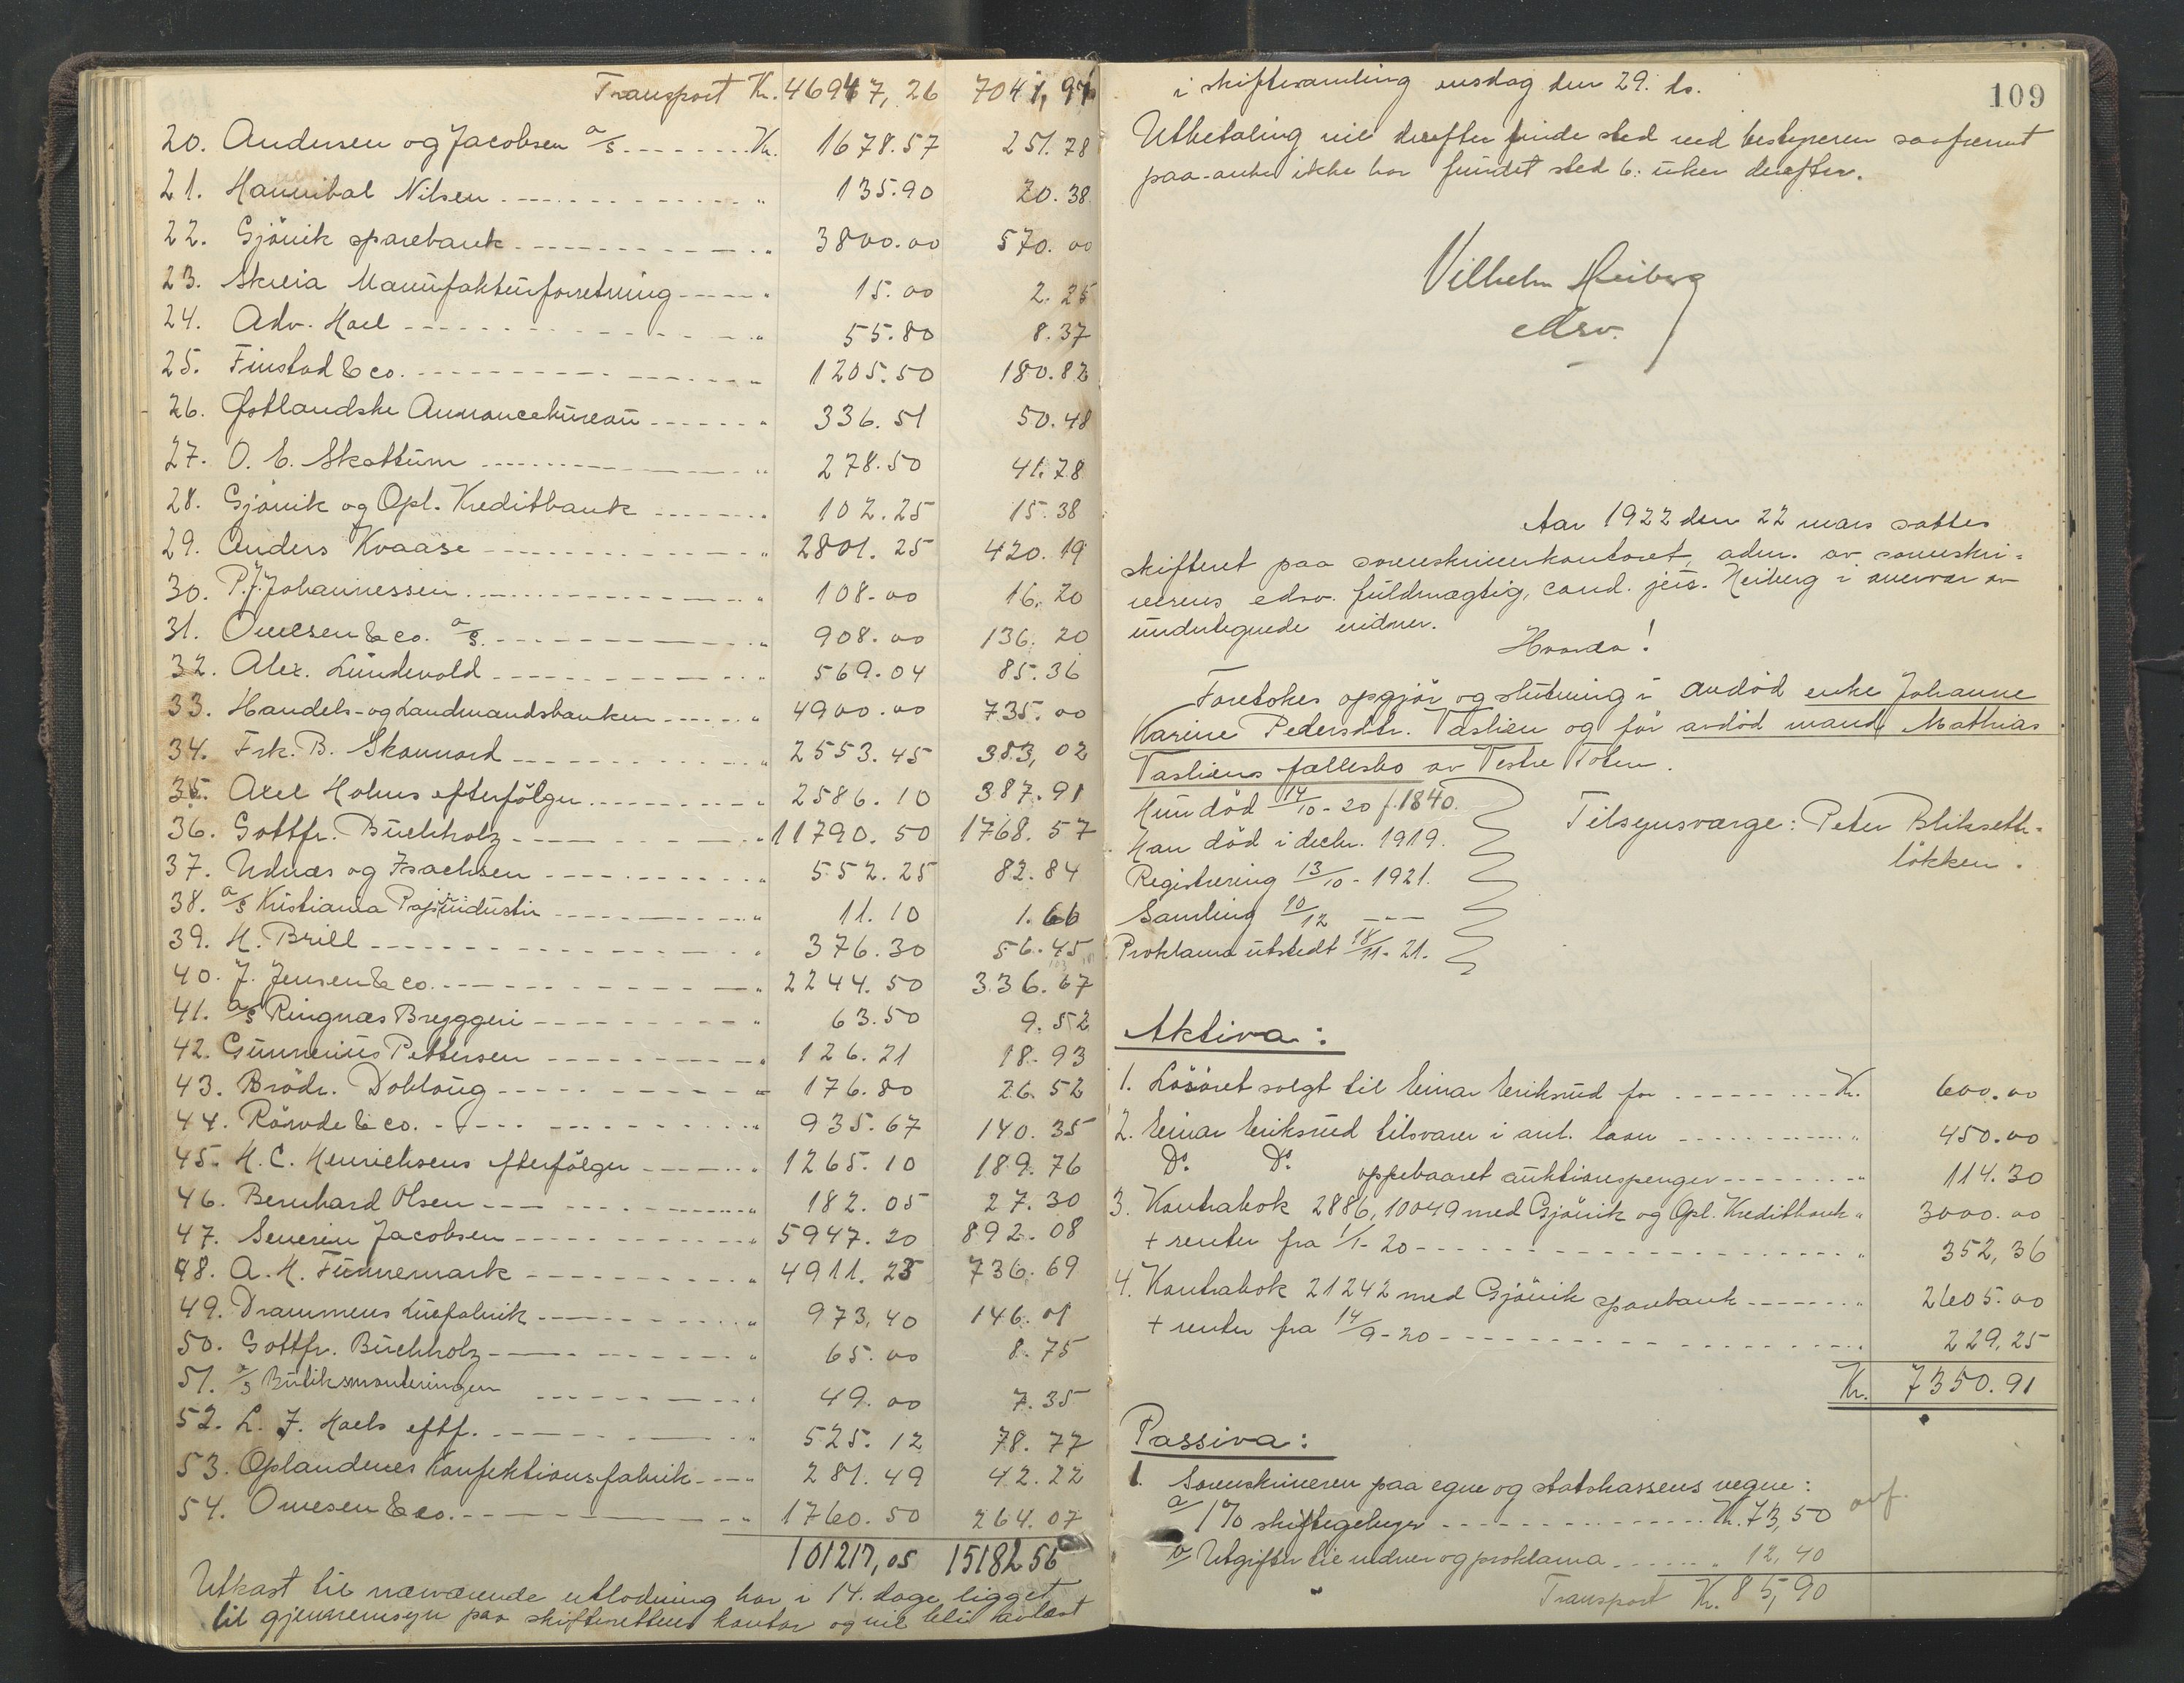 Transport Kr. 46947,26 7041,97
20. Andersen og Jacobsen a/s Kr. 1678.57 251.78
21. Hannibal Nilsen " 135.90 20.38
22. Gjövik sparebank " 3800.00 570.00
23. Skreia Manufakturforretning " 15.00 2.25
24. Adv. Hoel " 55.80 8.37
25. Finstad & co. " 1205.50 180.82
26. Østlandske Annoncebureau " 336.51 50.48
27. O. E. Skattum " 278.50 41.78
28. Gjövik og Opl. Kreditbank " 102.25 15.38
29. Anders Kvaase " 2801.25 420.19
30. P.J. Johannessen " 108.00 16.20
31. Owesen & co. a/s " 908.00 136.20
32. Alex. Lundevold " 569.04 85.36
33. Handels- og Landmandsbanken " 4900.00 735.00
34. Frk. B. Skonnord " 2553.45 383,02
35. Axel Holms efterfölger " 2586.10 387.91
36. Gottfr. Buchholz " 11790.50 1768.57
37. Udnæs og Isachsen " 552.25 82.84
38. a/s Kristiania Papirindustri " 11.10 1.66
39. H. Brill " 376.30 56.45
40. J. Jensen & co. " 2244.50 336.67
41. a/s Ringnæs Bryggeri " 63.50 9.52
42. Gunnerius Pettersen " 126.21 18.93
43. Brödr. Dobloug " 176.80 26.52
44. Rövde & co. " 935.67 140.35
45. H. C. Henrichsens efterfölger " 1265.10 189.76
46. Bernhard Olsen " 182.05 27.30
47. Severin Jacobsen " 5947.20 892.08
48. A. H. Funnemark " 4911.25 736.69
49. Drammens Luefabrik " 973,40 146.01
50. Gottfr. Buchholz " 65.00 8.75
51. a/s Butiksmonteringen " 49.00 7.35
52. L. J. Hoels eftf. " 525.12 78.77
53. Oplandenes Konfektionsfabrik " 281.49 42.22
54. Owesen & co. " 1760.50 264.07
101217,05 15182 56
Utkast til nærværende utlodning har i 14. dage ligget
til gjennemsyn paa skifterettens kontor og vil bli avlæst
109
i skiftesamling onsdag den 29. ds.
Utbetaling vil derefter finde sted ved bestyreren saafremt
paa-anke ikke har fundet sted 6: uker derefter.
Vilhelm Heiberg
edsv.
Aar 1922 den 22 mars sattes
skifteret paa sorenskriverkontoret, adm. av sorenskri=
verens edsv. fuldmægtig, cand. jur. Heiberg i overvær av
undertegnede vidner.
Hvorda!
Foretokes opgjör og slutning i avdöd enke Johanne
Karine Pedersdtr. Taslien og för avdöd mand Mathias
Tasliens fællesbo av Vestre Toten.
Hun död 14/10-20 f. 1840.
Han död i decbr. 1919.
Registrering 13/10-1921.
Samling 10/12 ---
Proklama utstedt 18/11-21.
Tilsynsværge: Peter Blikseth-
lökken.
Aktiva:
1. Lösöret solgt til Einar Eriksrud for Kr. 600.00
2. Einar Eriksrud tilsvarer i ant. laan " 450.00
Do. Do. oppebaaret auktionspenger " 114.30
3. Kontrabok 2886, 10049 med Gjövik og Opl. Kreditbank " 3000.00
+ renter fra 1/1-20 " 352,36
4. Kontrabok 21242 med Gjövik sparebank " 2605.00
+ renter fra 14/9-20 " 229,25
Kr. 7350.91
Passiva:
1. Sorenskriveren paa egne og statskassens vegne:
a/ 1% skiftegebyr Kr. 73,50
b/ Utgifter til vidner og proklama " 12,40
Transport Kr. 85,90